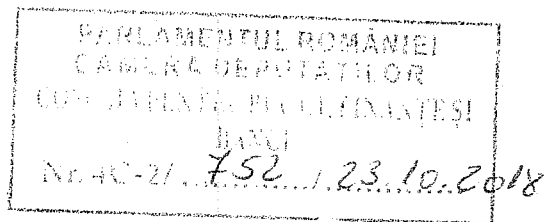 PARLAMENTUL ROMÂNIEI
CAMERA DEPUTAȚILOR
BUGET, FINANȚE ȘI
BĂNCI
Nr. 4C-2/ ...752.../.23.10.2018